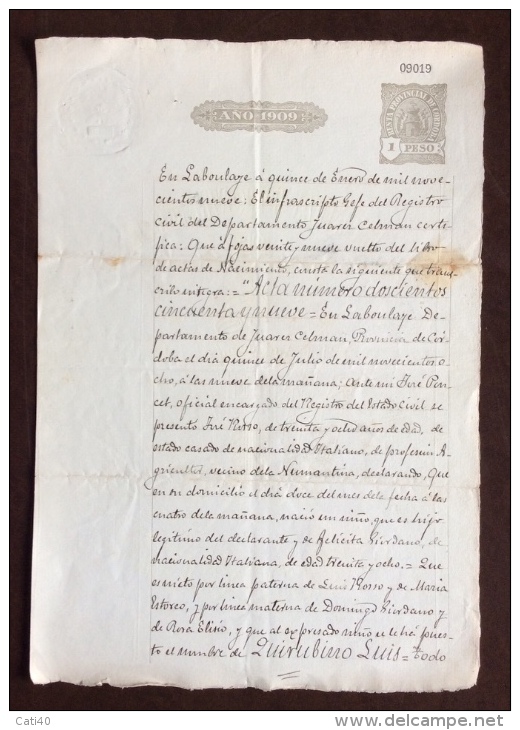 09019
AÑO 1909
RENTA PROVINCIAL DE CORDOBA
1 PESO
En Laboulaye á quince de Enero de mil nove-
cientos nueve: El infrascripto Gefe del Registro
Civil del Departamento Juarez Celman certi-
fica: Que á fojas veinte y nueve vuelto del libro
de actas de Nacimientos, consta la siguiente que trans-
cribo integra:= "Acta número doscientos
cincuenta y nueve = En Laboulaye De-
partamento de Juarez Celman, Provincia de Cór-
doba el dia quince de Julio de mil novecientos o-
cho, á las nueve de la mañana; Ante mi José
cet, Oficial encargado del Registro del Estado Civil, se
presentó José Rosso, de treinta y ocho años de edad, de
estado casado de nacionalidad Italiano, de profesion A-
gricultor, vecino de la Numantina, declarando, Que
en su domicilio el dia doce del mes de la fecha á las
cuatro de la mañana, nació un niño, que es hijo
legitimo del declarante y de Felicita Giordano, de
nacionalidad Italiana, de edad treinta y ocho.= Que
es nieto por linea paterna de Luis Rosso y de Maria
y por linea materna de Domingo Giordano y
de Rosa y que al expresado niño se le há pues-
to el nombre de Quirubino Luis = todo
Cati40
www.delcampe.net